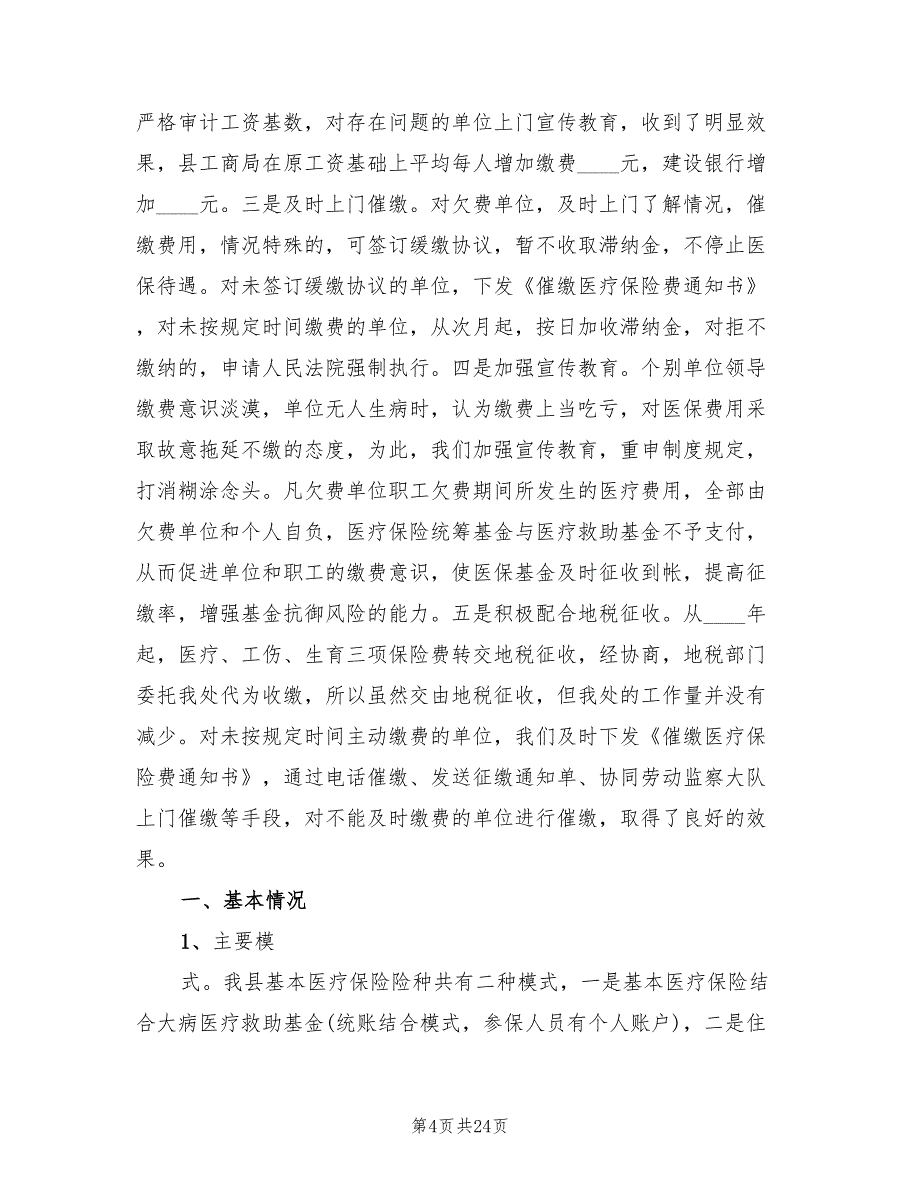 严格审计工资基数，对存在问题的单位上门宣传教育，收到了明显效
果，县工商局在原工资基础上平均每人增加缴费____元，建设银行增
加____元。三是及时上门催缴。对欠费单位，及时上门了解情况，催
缴费用，情况特殊的，可签订缓缴协议，暂不收取滞纳金，不停止医
保待遇。对未签订缓缴协议的单位，下发《催缴医疗保险费通知书》
，对未按规定时间缴费的单位，从次月起，按日加收滞纳金，对拒不
缴纳的，申请人民法院强制执行。四是加强宣传教育。个别单位领导
缴费意识淡漠，单位无人生病时，认为缴费上当吃亏，对医保费用采
取故意拖延不缴的态度，为此，我们加强宣传教育，重申制度规定，
打消糊涂念头。凡欠费单位职工欠费期间所发生的医疗费用，全部由
欠费单位和个人自负，医疗保险统筹基金与医疗救助基金不予支付，
从而促进单位和职工的缴费意识，使医保基金及时征收到帐，提高征
缴率，增强基金抗御风险的能力。五是积极配合地税征收。从____年
起，医疗、工伤、生育三项保险费转交地税征收，经协商，地税部门
委托我处代为收缴，所以虽然交由地税征收，但我处的工作量并没有
减少。对未按规定时间主动缴费的单位，我们及时下发《催缴医疗保
险费通知书》，通过电话催缴、发送征缴通知单、协同劳动监察大队
上门催缴等手段，对不能及时缴费的单位进行催缴，取得了良好的效
果。
一、基本情况
1、主要模
式。我县基本医疗保险险种共有二种模式，一是基本医疗保险结
合大病医疗救助基金(统账结合模式，参保人员有个人账户)，二是住
第4页共24页